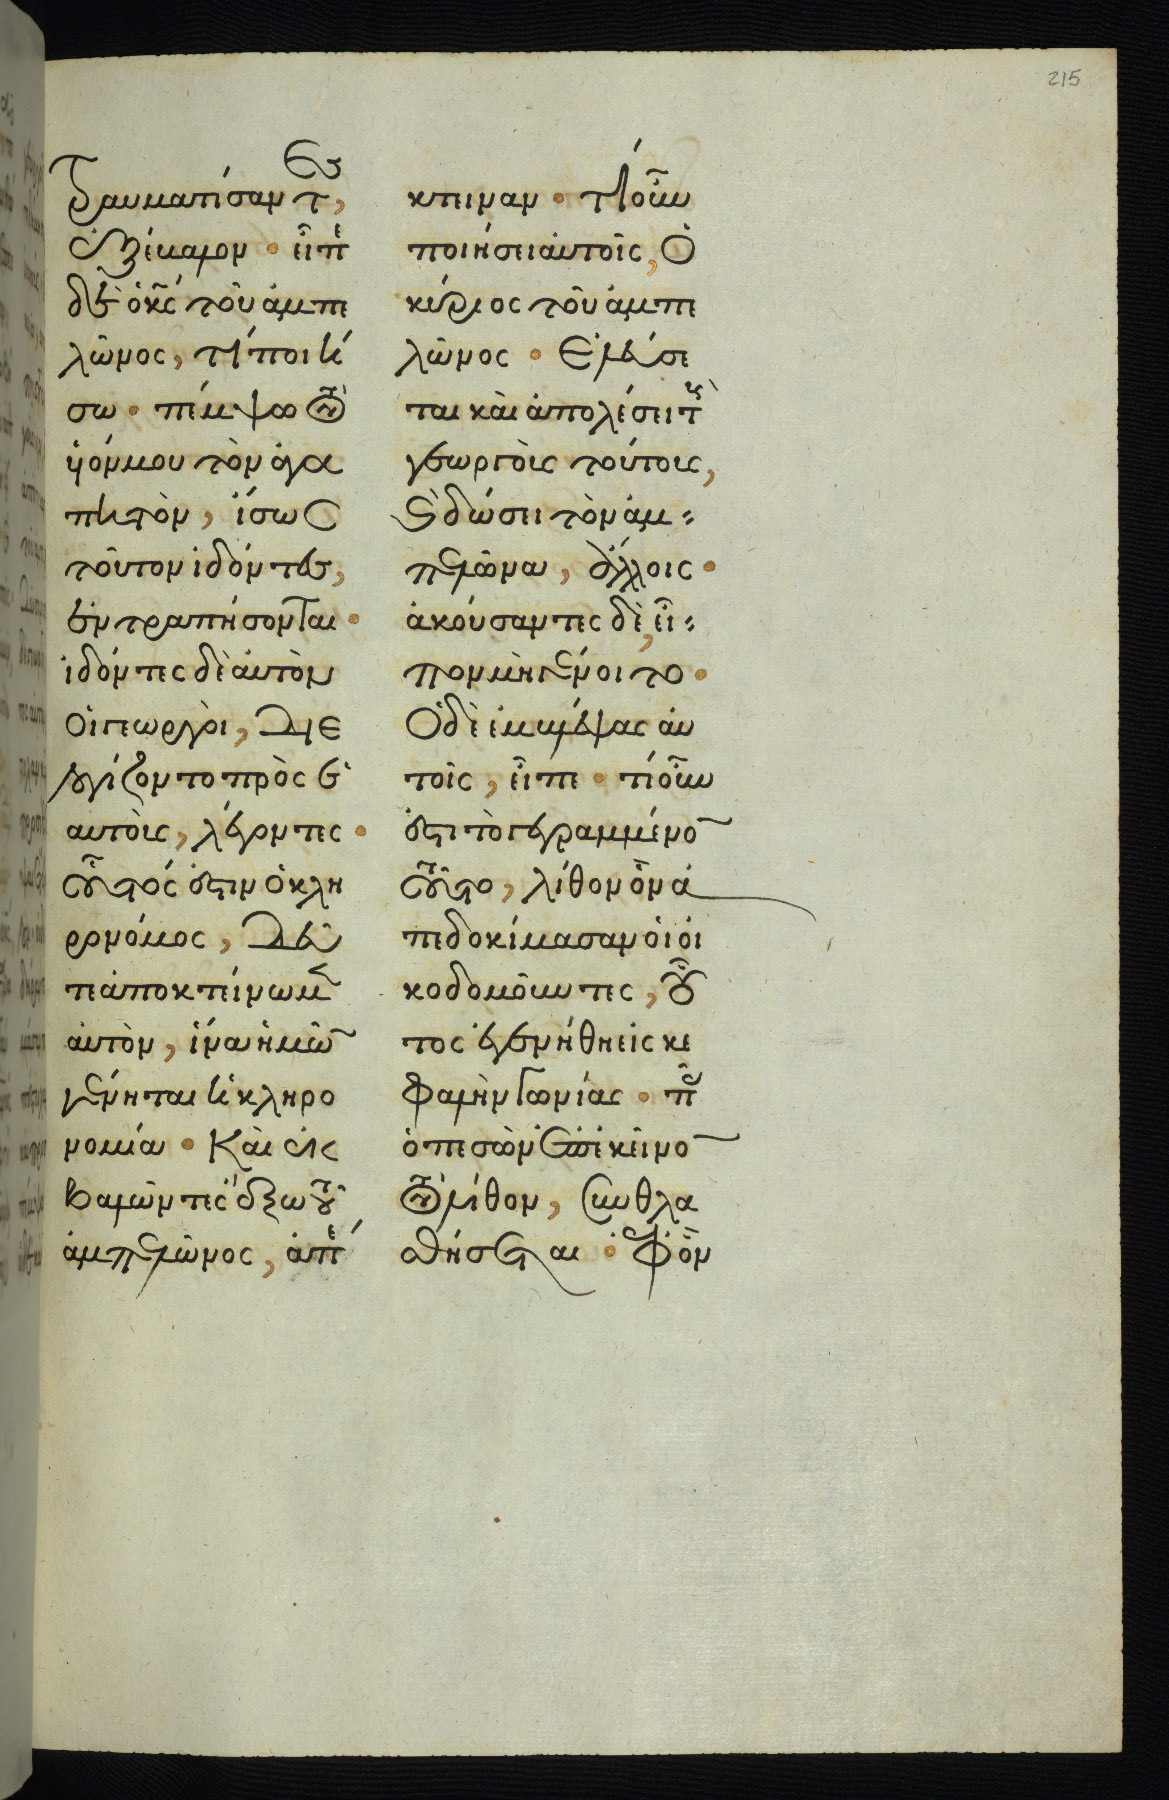 215
τραυματίσαντες,
ἐξέβαλον · εἶπε
δὲ ὁ κς τοῦ ἀμπε
λῶνος, τί ποιή
σω · πέμψω τὸν
υἱόν μου τὸν ἀγα
πητὸν, ἴσως
τοῦτον ἰδόντες,
ἐντραπήσονται ·
ἰδόντες δὲ αὐτὸν
οἱ γεωργοὶ, διε
λογίζοντο πρὸς ἑ
αυτοὺς, λέγοντες ·
οὗτός ἐστιν ὁ κλη
ρονόμος, δεῦ
τε ἀποκτείνωμεν
αὐτὸν, ἵνα ἡμῶν
γένηται ἡ κληρο
νομία · Καὶ ἐκ
βαλόντες ἔξω τοῦ
ἀμπελῶνος, ἀπέ
κτειναν · τί οὖν
ποιήσει αὐτοῖς, Ὁ
κύριος τοῦ ἀμπε
λῶνος · Ἐλεύσε
ται καὶ ἀπολέσει τοὺς
γεωργοὺς τούτους,
καὶ δώσει τὸν ἀμ
πελῶνα, ἄλλοις ·
ἀκούσαντες δὲ, εἶ
πον μὴ γένοιτο ·
Ὁ δὲ ἐμβλέψας αὐ
τοῖς, εἶπε · τί οὖν
ἐστι τὸ γεγραμμένον
τοῦτο, λίθον ὃν ἀ
πεδοκίμασαν οἱ οἰ
κοδομοῦντες, οὗ
τος ἐγενήθη εἰς κε
φαλὴν γωνίας · πᾶς
ὁ πεσὼν ἐπ' ἐκεῖνον
τὸν λίθον, συνθλα
σθήσεται · ἐφ' ὃν